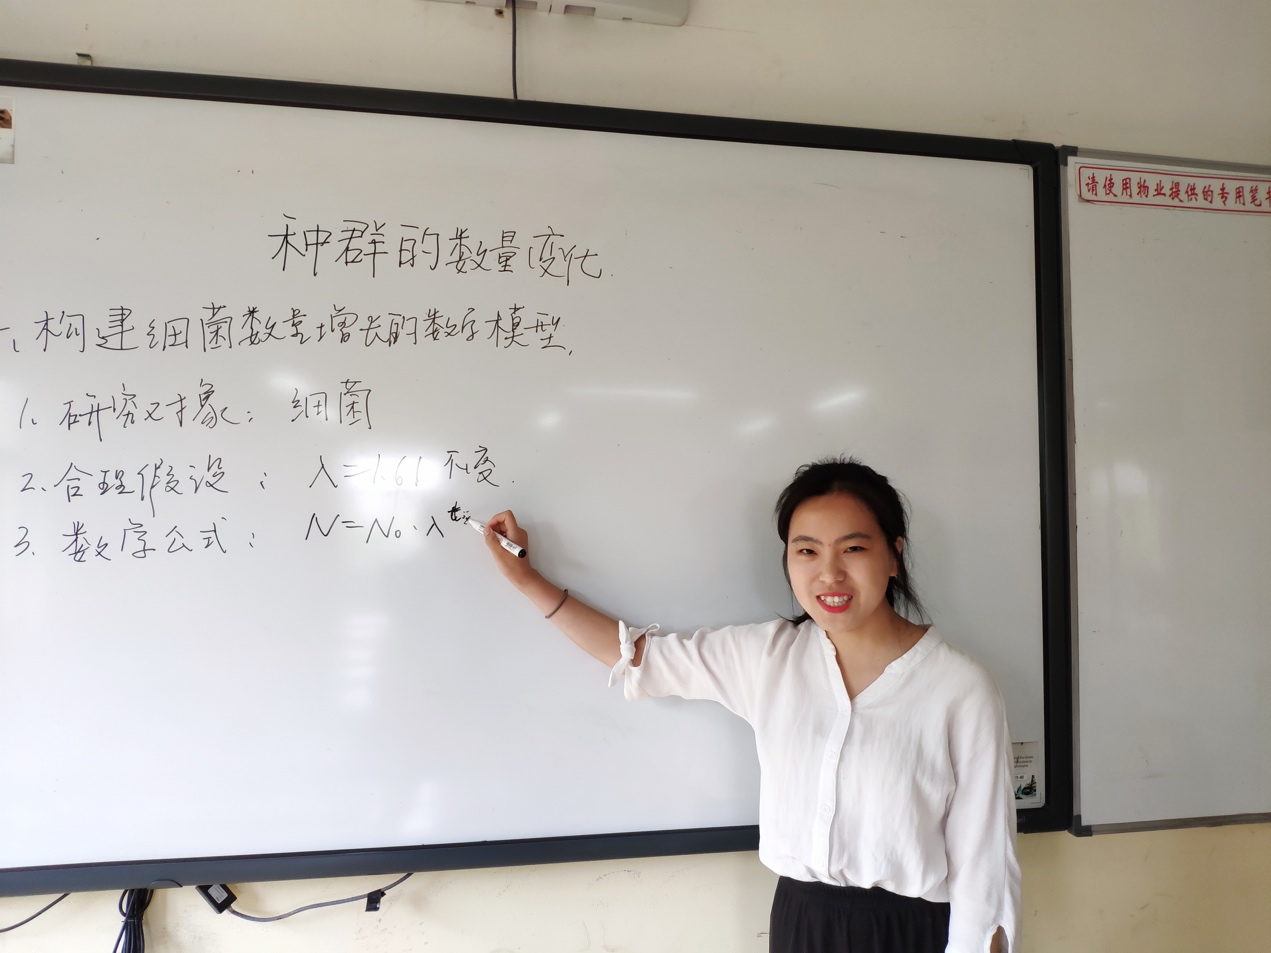 种群的数量变化.
一、构建细菌数量增长的数学模型.
1. 研究对象: 细菌
2. 合理假设: λ=1.61 不变.
3. 数学公式: N=N₀·λ
请使用物业提供的专用笔